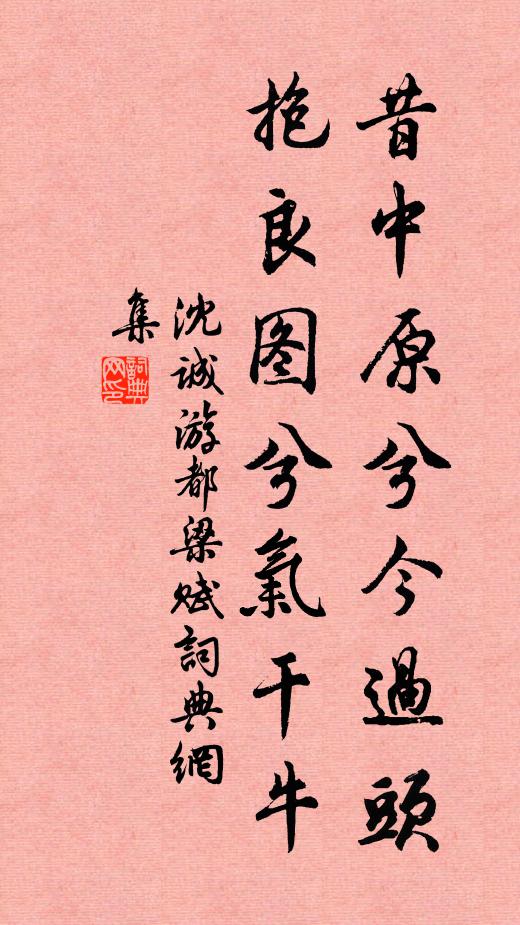 昔中原兮今過頭
抱良图兮氣干牛
沈诚游都梁赋詞典網
集
詞典
网印